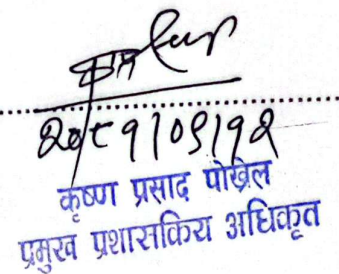 २०८१/०९/१२
कृष्ण प्रसाद पोख्रेल
प्रमुख प्रशासकिय अधिकृत